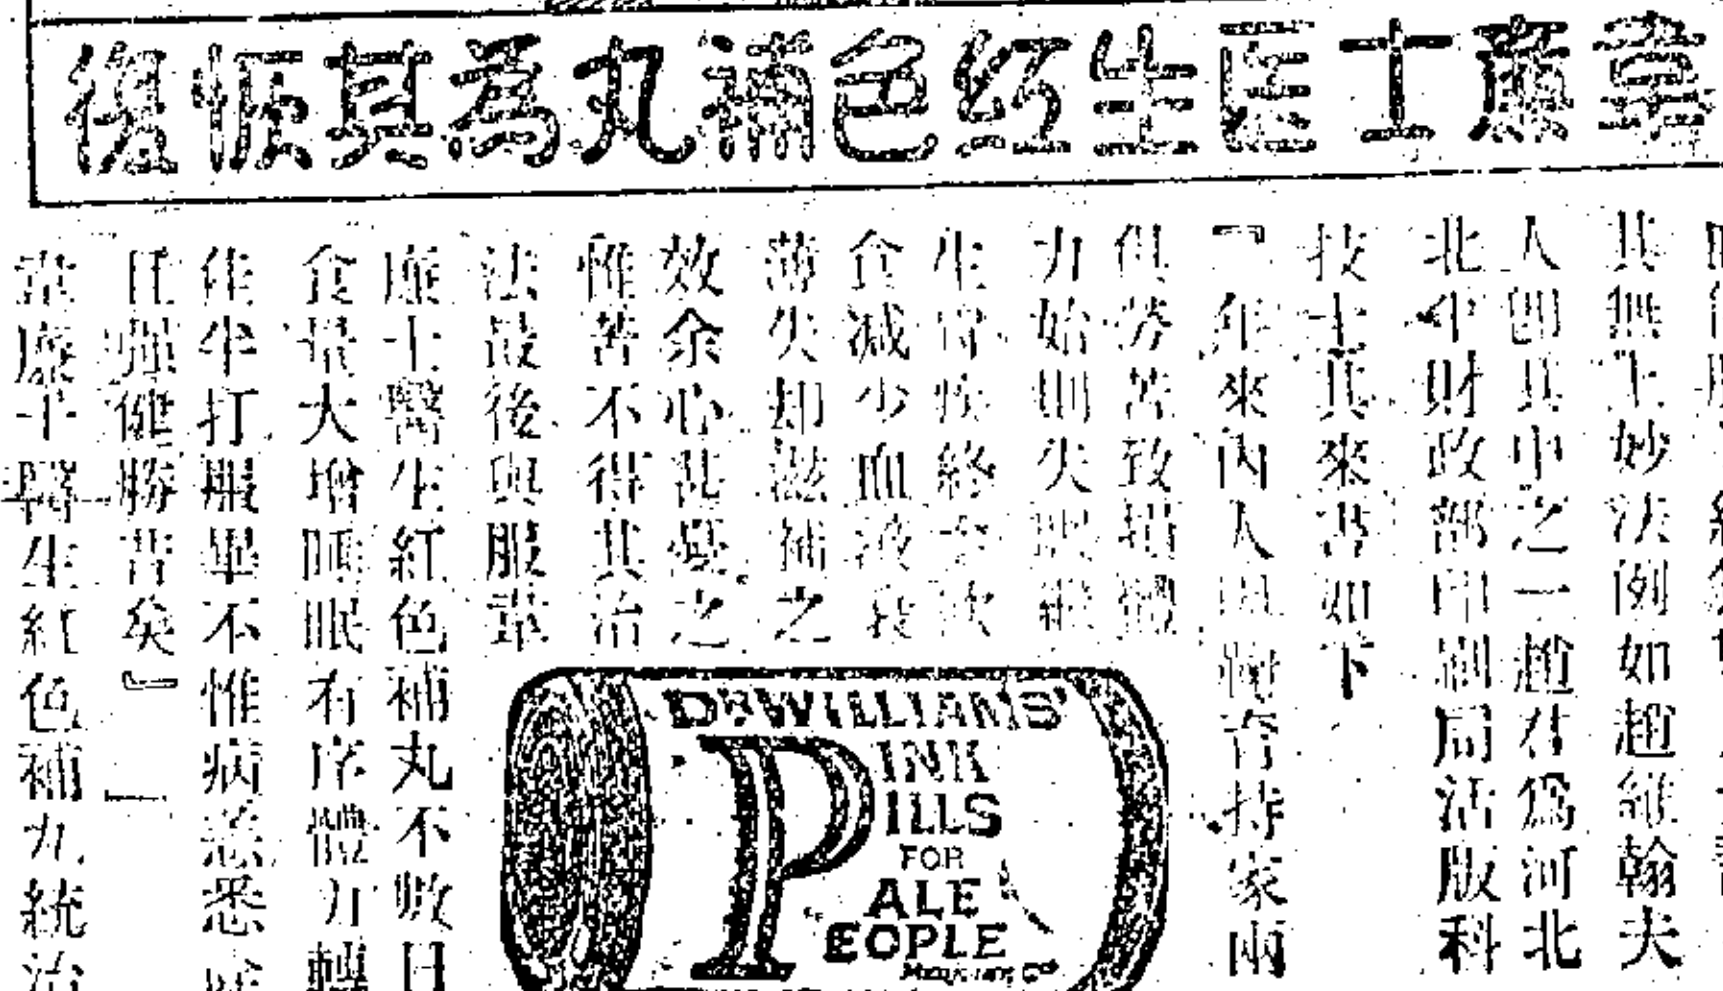 韋廉士醫生紅色補丸為其恢復
其無上妙法例如趙維翰夫
人即其中之一趙君為河北
北平財政部印刷局活版科
技士其來書如下
『年來內人因 育持家兩
俱勞苦致損體
力始則失眠繼
生胃疾終至飲
食減少血液衰
薄失却滋補之
效余心甚憂之
惟苦不得其治
法最後與服韋
廉士醫生紅色補丸不數日
食量大增睡眠有序體力轉
佳半打服畢不惟病恙悉
且強健勝昔矣』
韋廉士醫生紅色補丸統治
DR WILLIAMS'
PINK
PILLS
FOR
PALE
PEOPLE